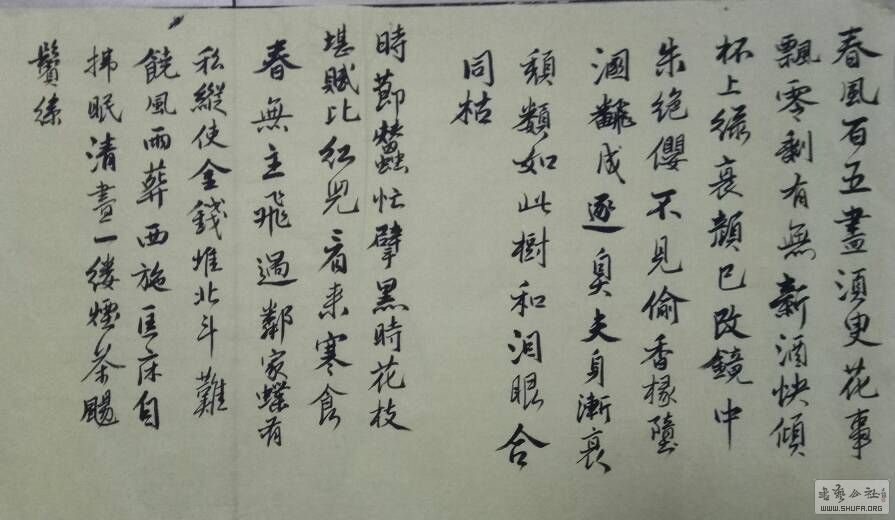 春風百五盡須臾花事
飄零剩有無新酒快傾
杯上綠衰顏已改鏡中
朱絕纓不見偷香掾墮
溷飜成逐臭夫身漸衰
頹類如此樹和泪眼合
同枯
時節蠶忙擘黑時花枝
堪賦比紅兒看来寒食
春無主飛過鄰家蝶有
私縱使金錢堆北斗難
饒風雨葬西施匡床自
拂眠清晝一縷煙茶颺
鬢絲
書藝公社
WWW.SHUFA.ORG